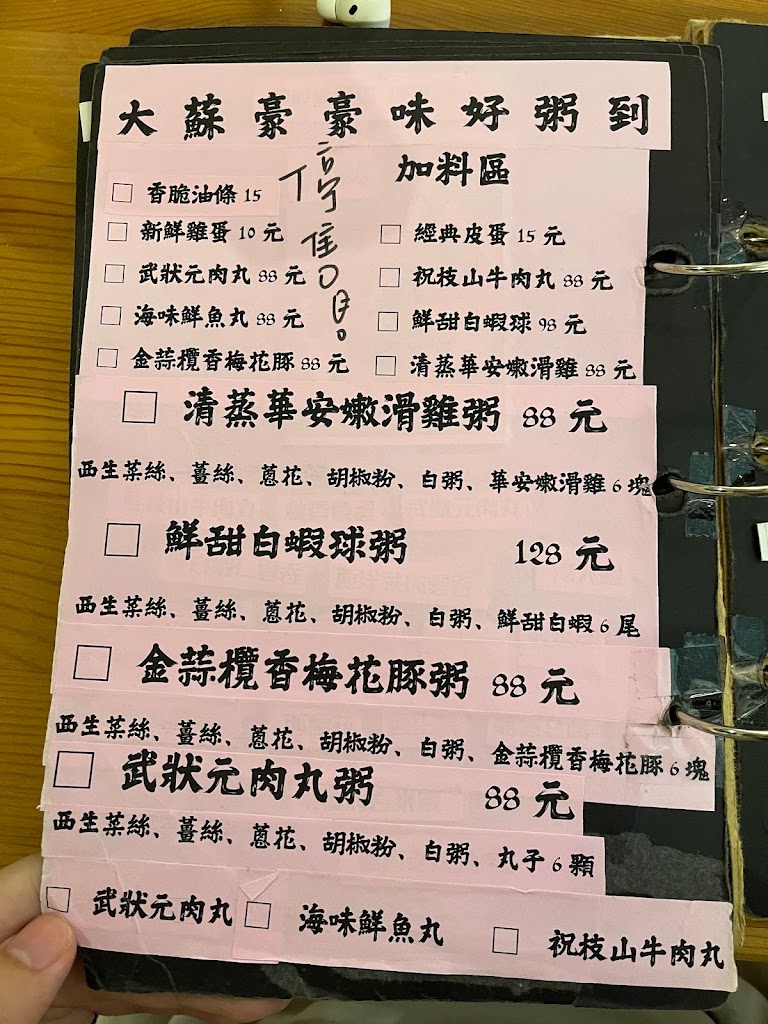 大蘇豪豪味好粥到
加料區
停售0月。
□ 香脆油條 15
□ 新鮮雞蛋 10 元 □ 經典皮蛋 15 元
□ 武狀元肉丸 88 元 □ 祝枝山牛肉丸 88 元
□ 海味鮮魚丸 88 元 □ 鮮甜白蝦球 98 元
□ 金蒜欖香梅花豚 88 元 □ 清蒸華安嫩滑雞 88 元
□ 清蒸華安嫩滑雞粥 88 元
西生菜絲、薑絲、蔥花、胡椒粉、白粥、華安嫩滑雞 6 塊
□ 鮮甜白蝦球粥 128 元
西生菜絲、薑絲、蔥花、胡椒粉、白粥、鮮甜白蝦 6 尾
□ 金蒜欖香梅花豚粥 88 元
西生菜絲、薑絲、蔥花、胡椒粉、白粥、金蒜欖香梅花豚 6 塊
□ 武狀元肉丸粥 88 元
西生菜絲、薑絲、蔥花、胡椒粉、白粥、丸子 6 顆
□ 武狀元肉丸 □ 海味鮮魚丸 □ 祝枝山牛肉丸